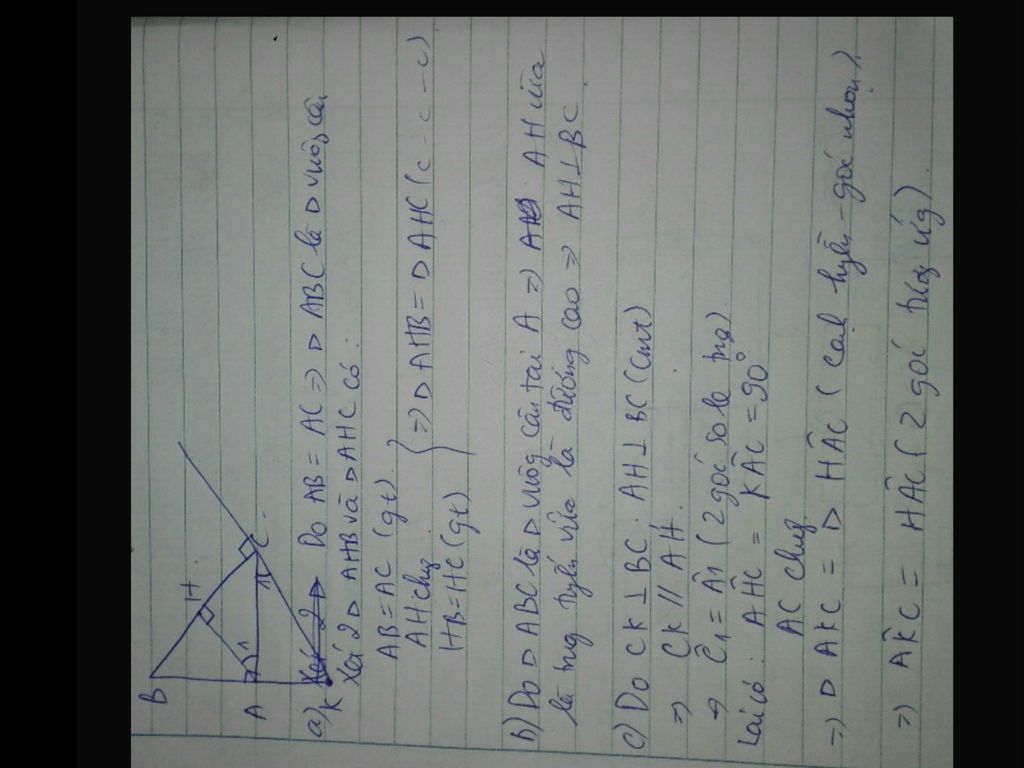 B
H
A
1
C
1
K
a) Xét 2 Δ Do AB = AC => Δ ABC là Δ vuông cân
Xét 2 Δ AHB và Δ AHC có:
AB = AC (gt)
AH chug
HB = HC (gt)
=> Δ AHB = Δ AHC (c - c - c)
b) Do Δ ABC là Δ vuông cân tại A => AH vừa
là trug tuyến vừa là đường cao => AH ⊥ BC
c) Do CK ⊥ BC. AH ⊥ BC (cmt)
=> CK // AH
=> Ĉ1 = Â1 (2 góc so le trog)
Lại có: AĤC = KÂC = 90°
AC chug
=> Δ AKC = Δ HÂC (cạh huyền - góc nhọn)
=> AK̂C = HÂC (2 góc tươg ứg)